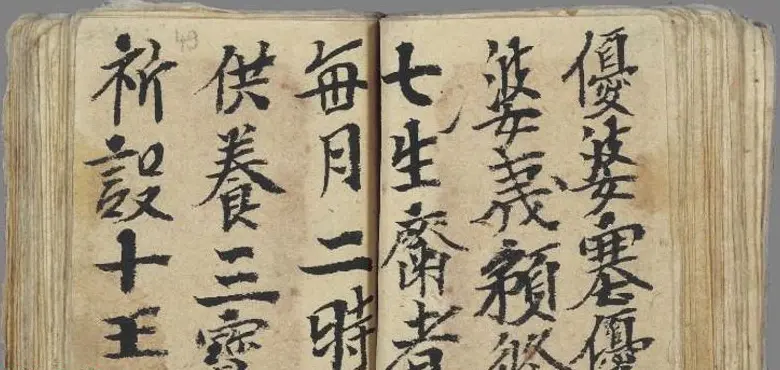 優婆塞優
婆義預修
七生齋者
每月二時
供養三寶
祈設十王
49